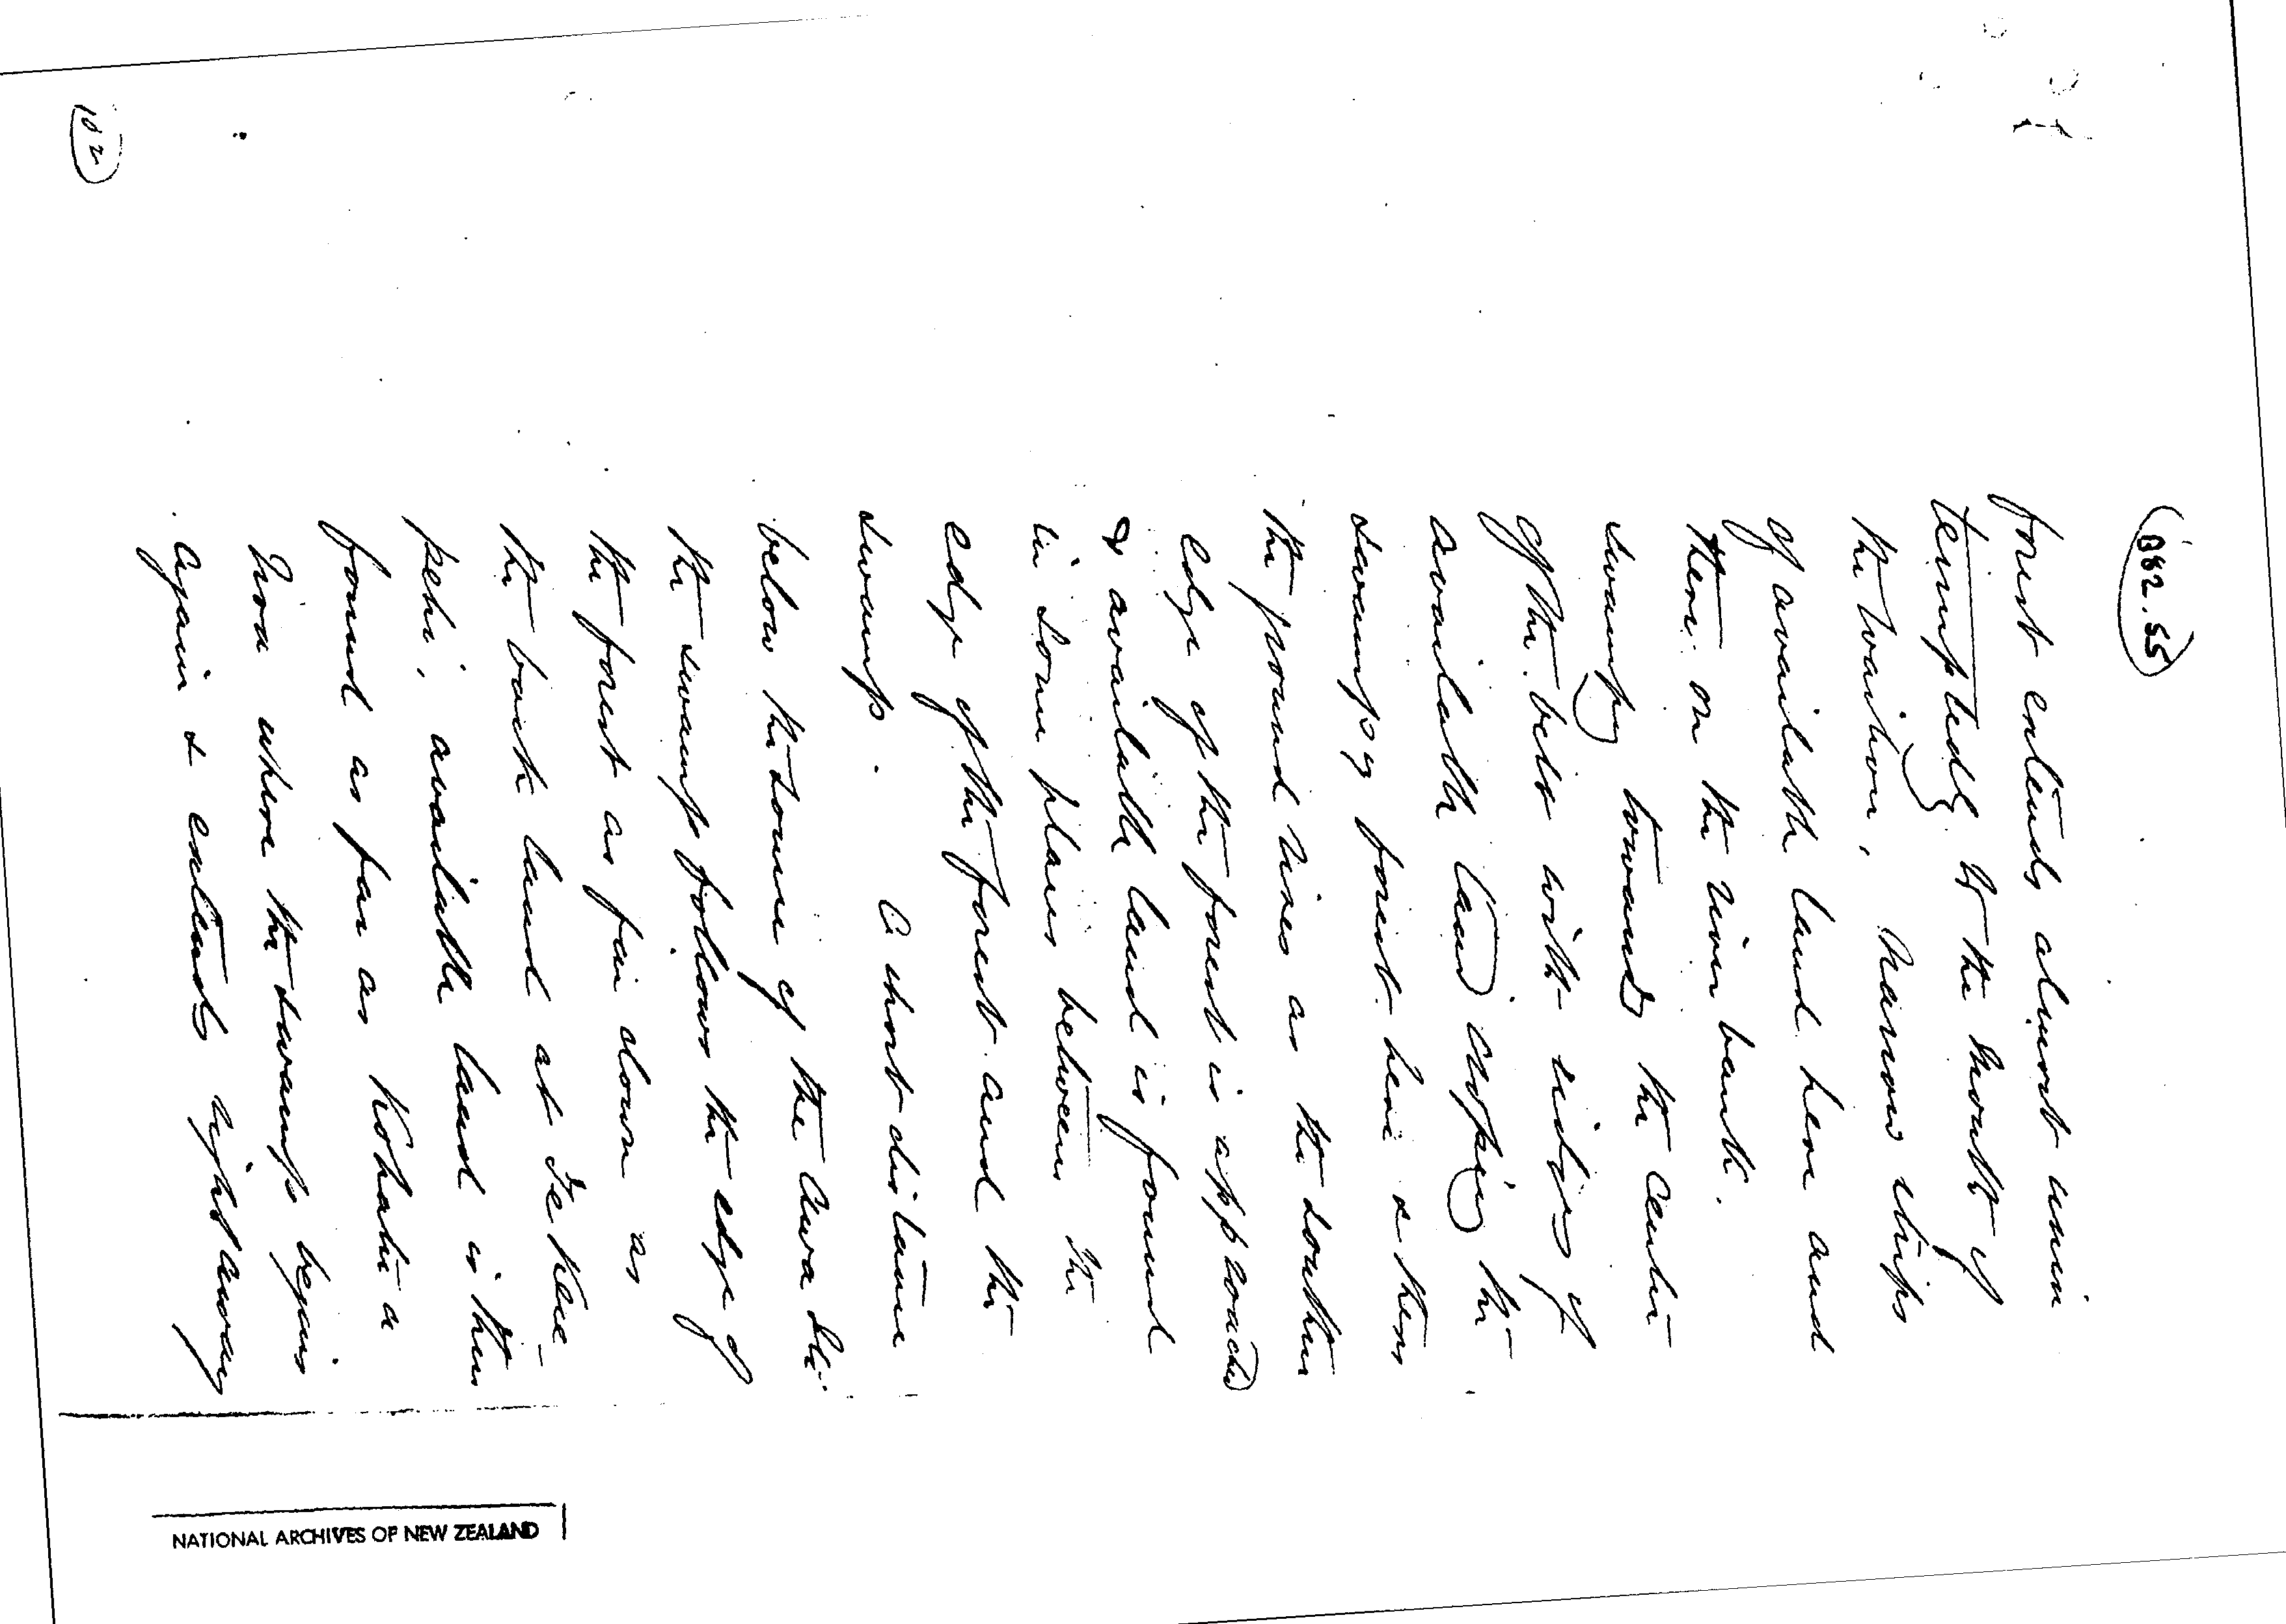 (882.55)
forest extends almost unin
terruptedly to the mouth of
the Waitoa, Narrow strips
of available land here and
there on the river bank.
swampy towards the centre
of the belt with ridges of
available land copping the
swampy forest here & there
the ground rises as the southern
edge of the forest is approached
& available land is found
in some places between the
edge of the forest and the
swamp. A short distance
below the source of the Awa Iti
the swamp follows the edge of
the forest as far down as
the back land at Te Kee-
pehi, available land is then
found as far as Kohatu a
where the swamp begins
again & extends right away
102
NATIONAL ARCHIVES OF NEW ZEALAND